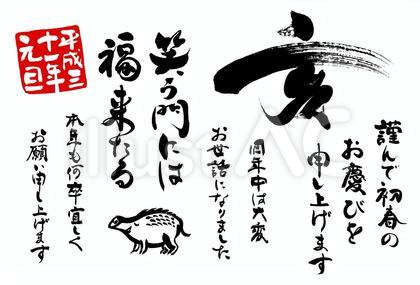 亥
謹んで初春の
お慶びを
申し上げます
旧年中は大変
お世話になりました
笑う門には
福来たる
本年も何卒宜しく
お願い申し上げます
平成三
十一年
元旦
illustAC